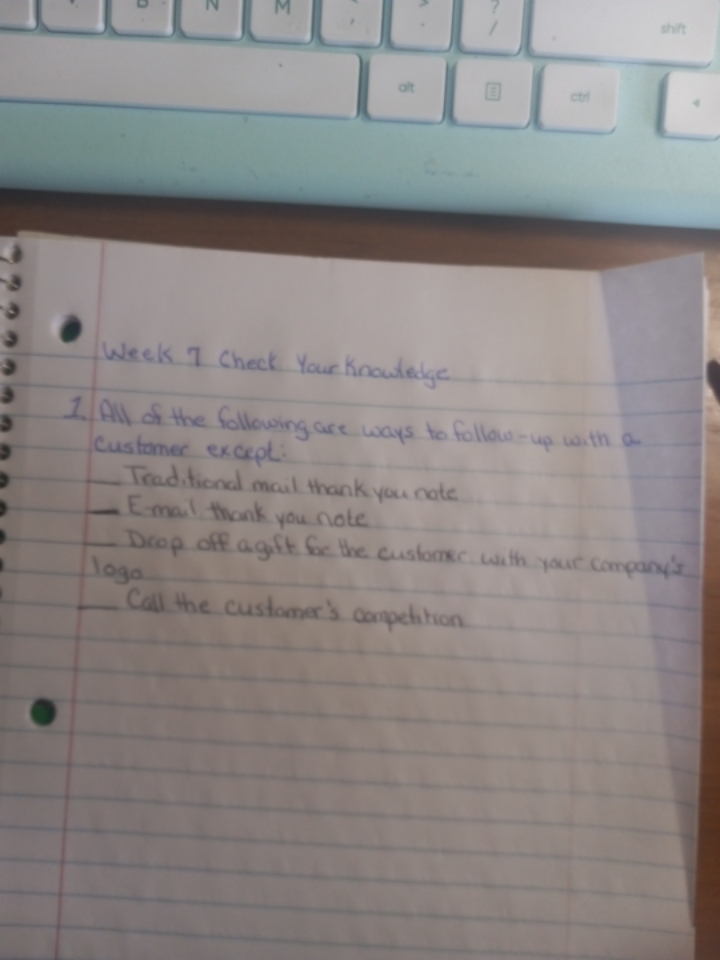 B N M < > ?
, . /
shift
alt ctrl
Week 7 Check Your Knowledge
1. All of the following are ways to follow-up with a
customer except:
__ Traditional mail thank you note
__ E-mail thank you note
__ Drop off a gift for the customer with your company's
logo
__ Call the customer's competition